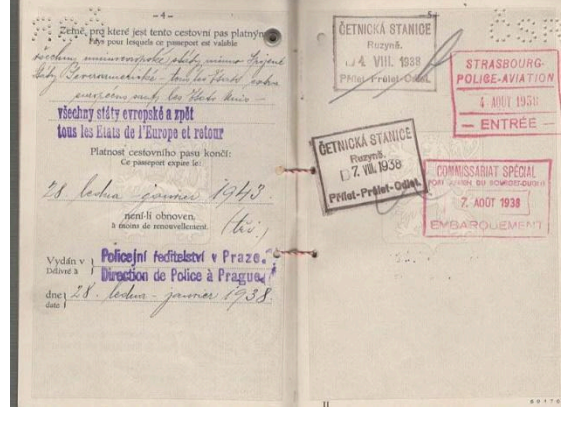 — 4 —
Země, pro které jest tento cestovní pas platným
Pays pour lesquels ce passeport est valable
všechny mimoevropské státy mimo Spojené
státy Severoamerické - tous les États extra
européens sauf les États Unis -
všechny státy evropské a zpět
tous les Etats de l'Europe et retour
Platnost cestovního pasu končí:
Ce passeport expire le:
28. ledna janvier 1943
není-li obnoven.
à moins de renouvellement.
(tři.)
Vydán v Policejní ředitelství v Praze.
Délivré à Direction de Police à Prague.
dne 28. ledna - janvier 1938.
date
5
ČETNICKÁ STANICE
Ruzyně.
4. VIII. 1938
Přílet-Průlet-Odlet.
STRASBOURG-
POLICE-AVIATION
4 AOUT 1938
— ENTRÉE —
ČETNICKÁ STANICE
Ruzyně.
7. VIII. 1938
Přílet-Průlet-Odlet.
COMMISSARIAT SPÉCIAL
7. AOÛT 1938
EMBARQUEMENT
II